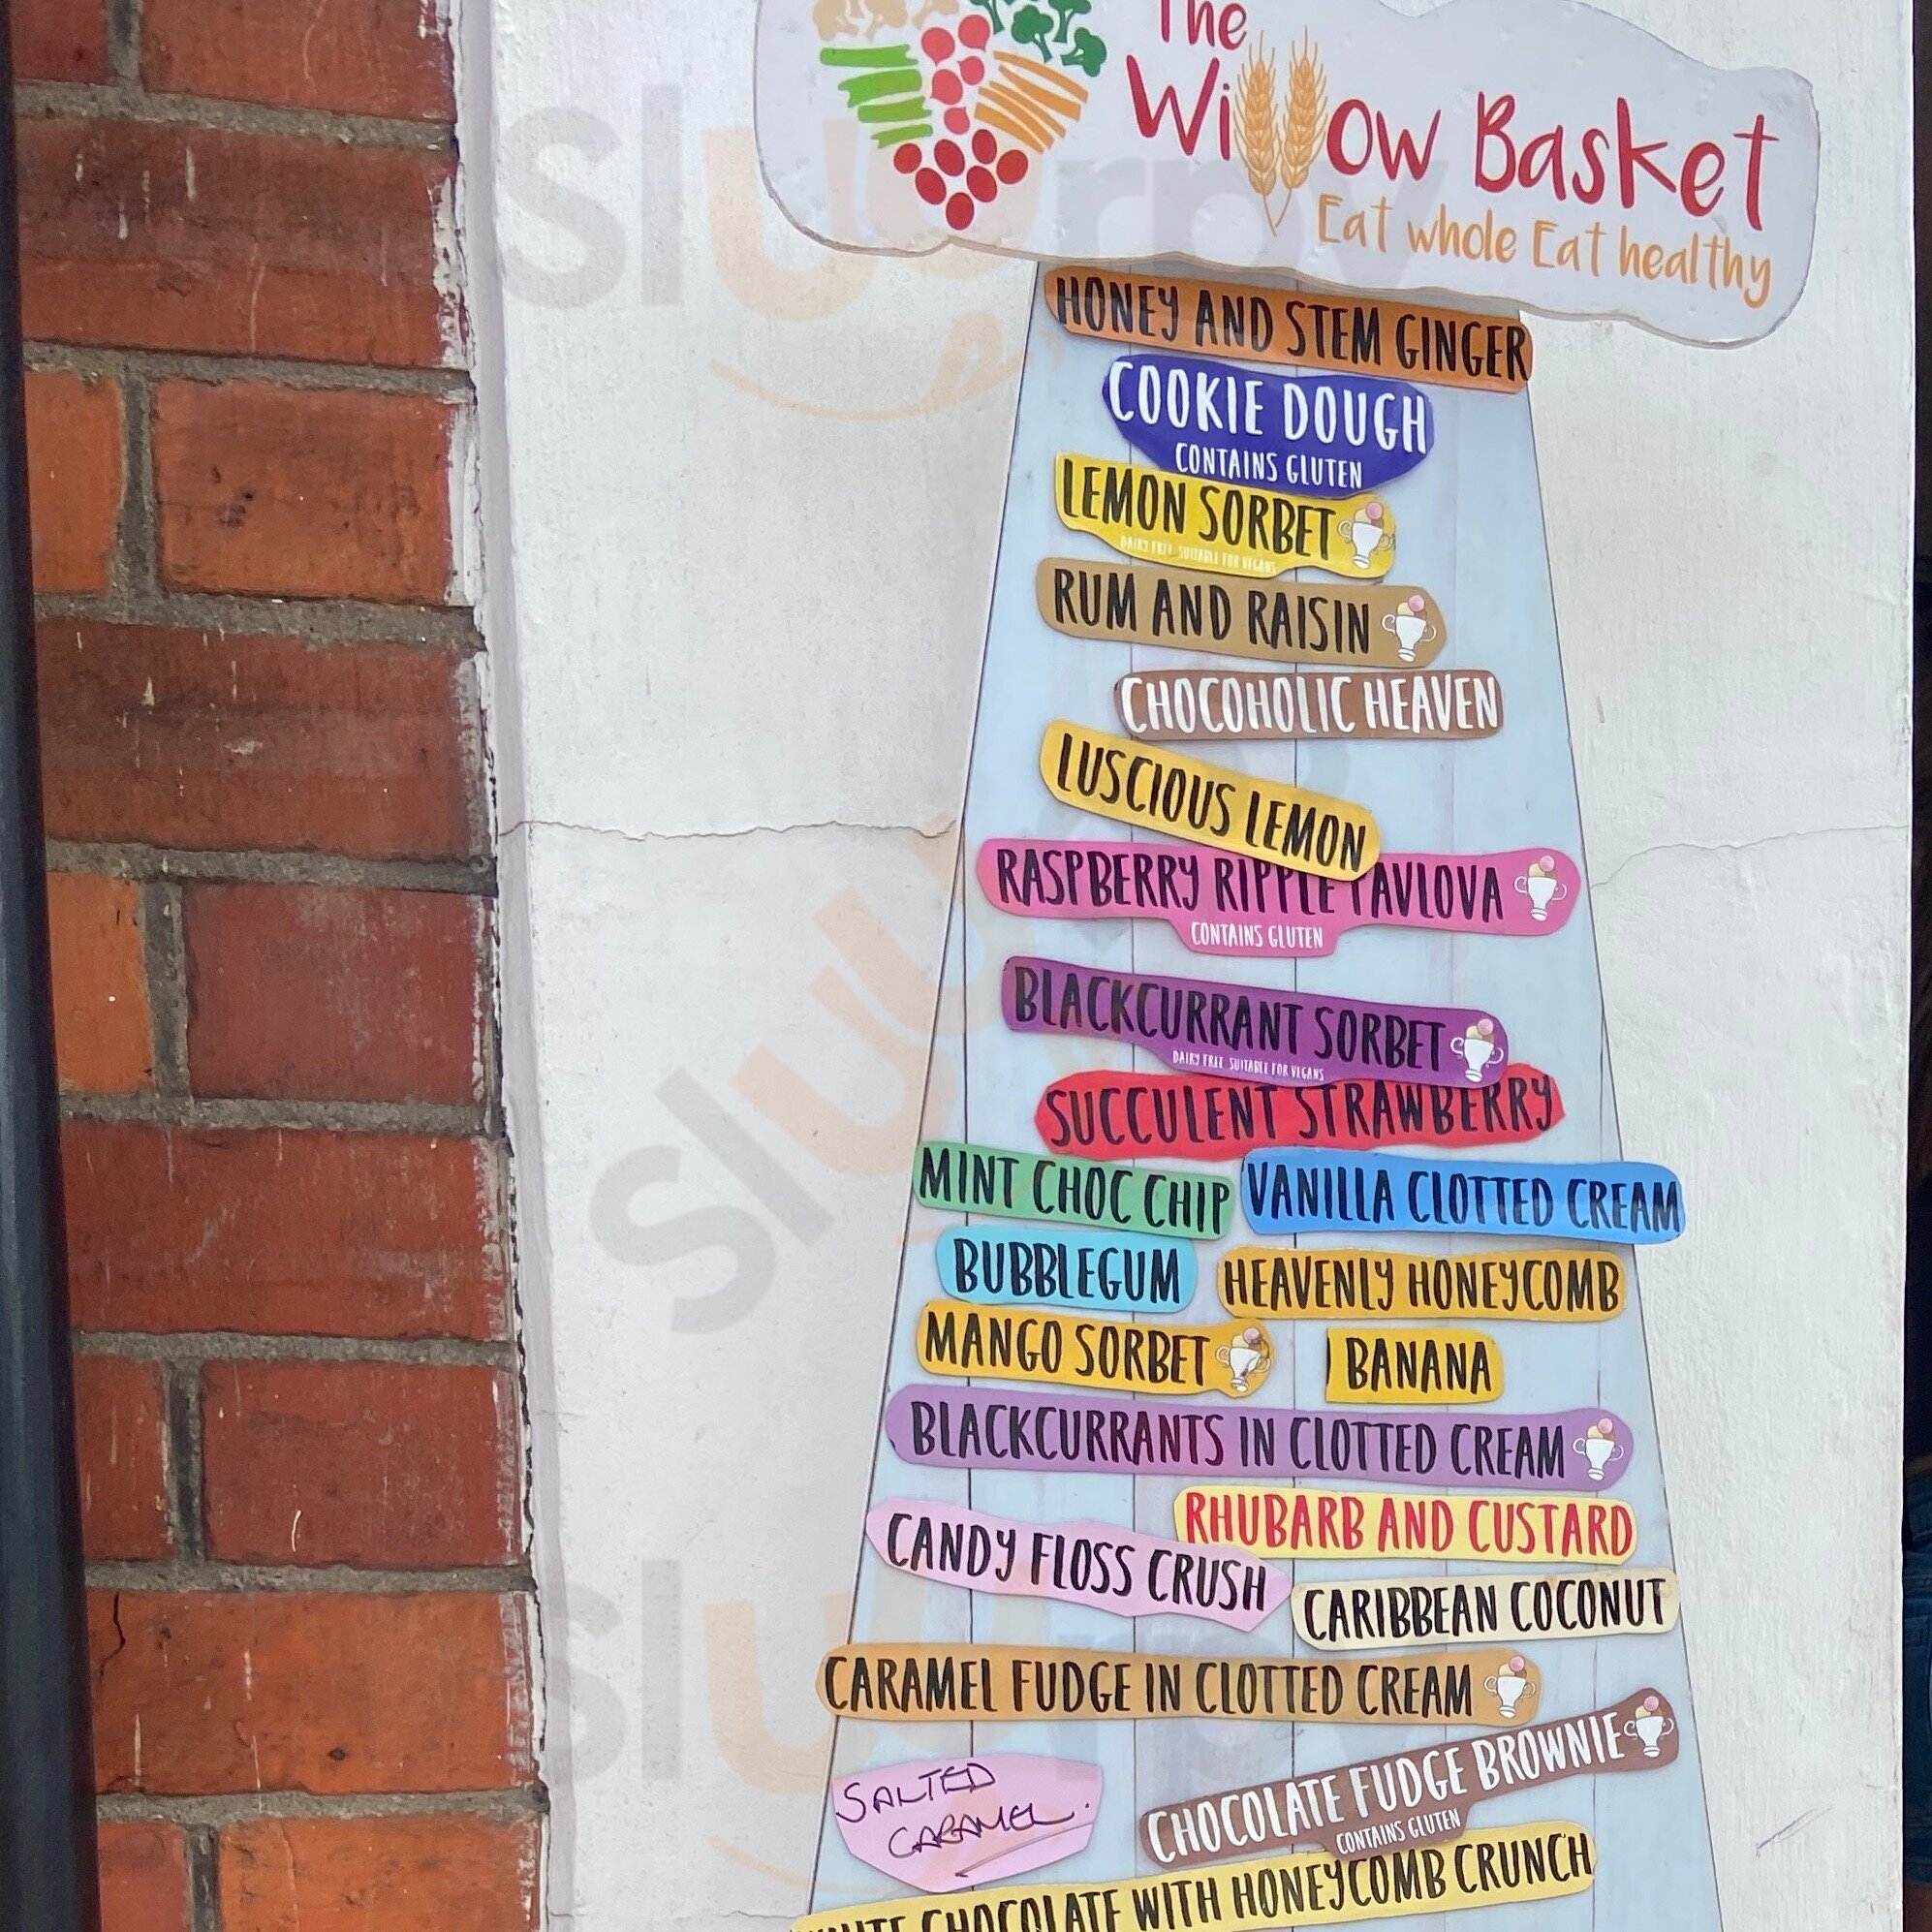 The
Willow Basket
Eat whole Eat healthy
HONEY AND STEM GINGER
COOKIE DOUGH
CONTAINS GLUTEN
LEMON SORBET
DAIRY FREE SUITABLE FOR VEGANS
RUM AND RAISIN
CHOCOHOLIC HEAVEN
LUSCIOUS LEMON
RASPBERRY RIPPLE PAVLOVA
CONTAINS GLUTEN
BLACKCURRANT SORBET
DAIRY FREE SUITABLE FOR VEGANS
SUCCULENT STRAWBERRY
MINT CHOC CHIP
VANILLA CLOTTED CREAM
BUBBLEGUM
HEAVENLY HONEYCOMB
MANGO SORBET
BANANA
BLACKCURRANTS IN CLOTTED CREAM
RHUBARB AND CUSTARD
CANDY FLOSS CRUSH
CARIBBEAN COCONUT
CARAMEL FUDGE IN CLOTTED CREAM
SALTED
CARAMEL.
CHOCOLATE FUDGE BROWNIE
CONTAINS GLUTEN
WHITE CHOCOLATE WITH HONEYCOMB CRUNCH
sluurpy
sluurpy
sluurpy